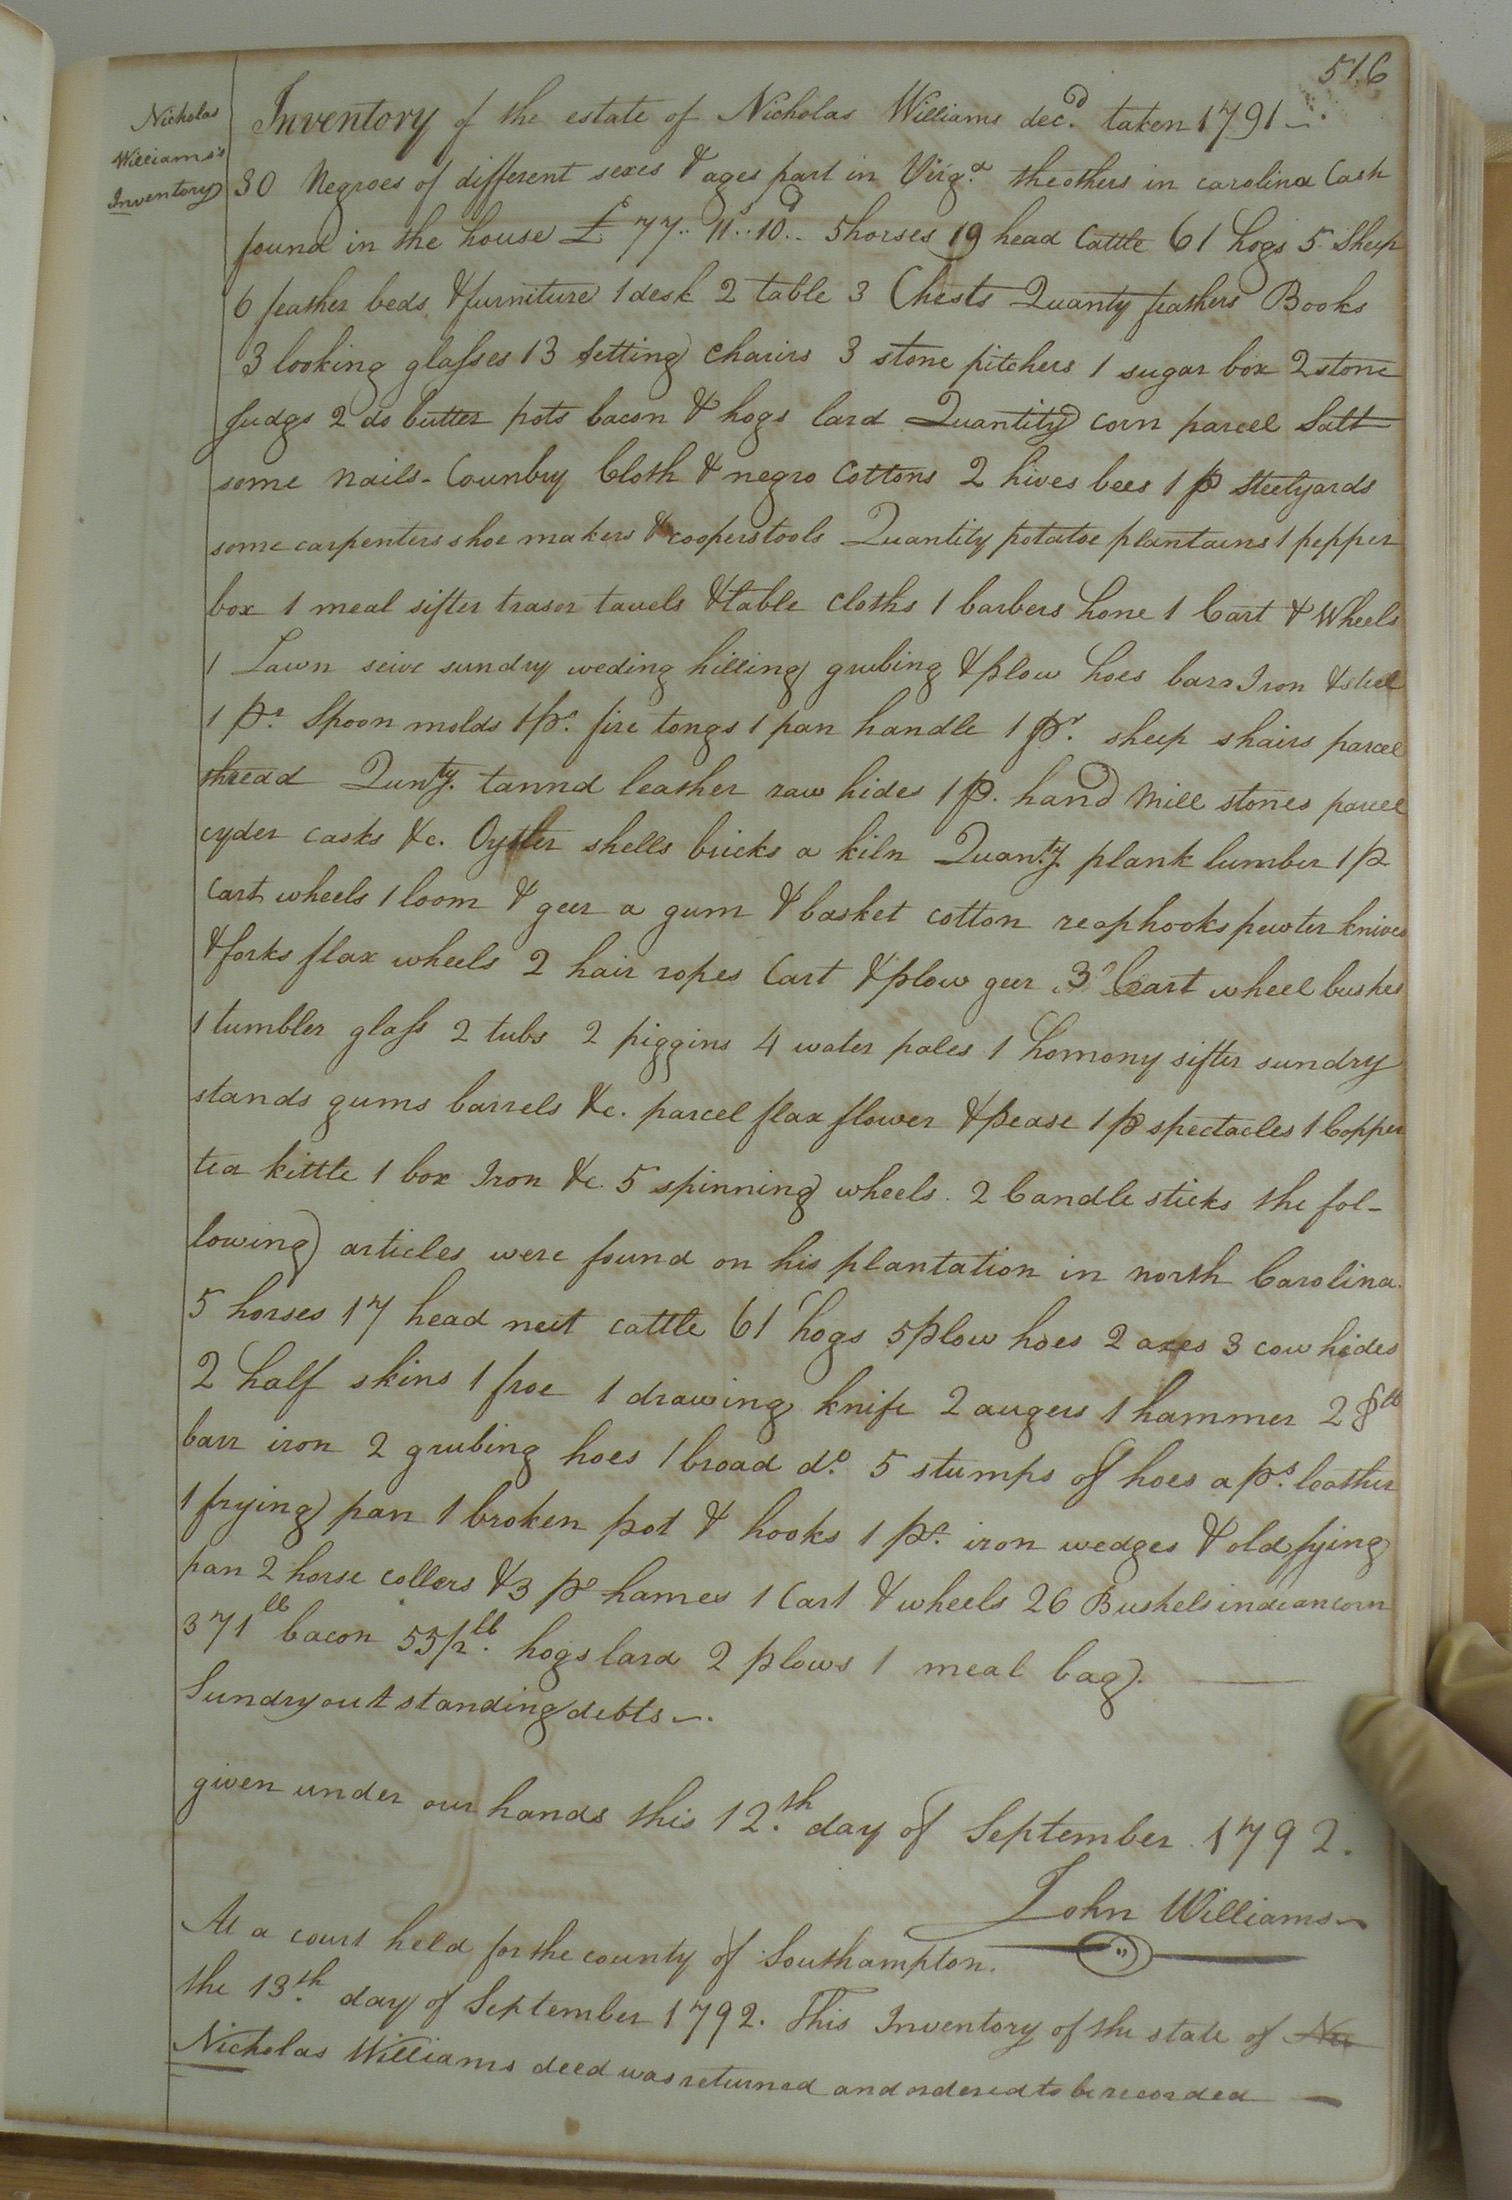 516
Nicholas
Williams's
Inventory
Inventory of the estate of Nicholas Williams decd. taken 1791
30 Negroes of different sexes & ages part in Virga. the others in carolina Cash
found in the house £ 77.. 11s..10d.. 5 horses 19 head Cattle 61 hogs 5 Sheep
6 feather beds & furniture 1 desk 2 table 3 Chests Quanty feathers Books
3 looking glasses 13 setting chairs 3 stone pitchers 1 sugar box 2 stone
Judgs 2 do butter pots bacon & hogs lard Quantity corn parcel Salt
some nails - Country Cloth & negro Cottons 2 hives bees 1 p Steelyards
some carpenters shoe makers & coopers tools Quantity potatoe plantains 1 pepper
box 1 meal sifter trasor tauels & table cloths 1 barbers hone 1 Cart & Wheels
1 Lawn seive sundry weding hilling grubing & plow hoes barr Iron & steel
1 pr. Spoon molds 1 pr. fire tongs 1 pan handle 1 pr. sheep shairs parcel
thread Qunty. tannd leather raw hides 1 p. hand Mill stones parcel
cyder casks &c. Oyster shells bricks a kiln Quanty. plank lumber 1 p
Cart wheels 1 loom & geer a gum & basket cotton reaphooks pewter knives
& forks flax wheels 2 hair ropes Cart & plow geer 3 Cart wheel bushes
1 tumbler glass 2 tubs 2 piggins 4 water pales 1 homony sifter sundry
stands gums barrels &c. parcel flax flower & pease 1 p spectacles 1 Copper
tea kittle 1 box Iron &c 5 spinning wheels. 2 Candle sticks the fol-
lowing articles were found on his plantation in north Carolina.
5 horses 17 head neet cattle 61 hogs 5 plow hoes 2 axes 3 cow hides
2 half skins 1 froe 1 drawing knife 2 augers 1 hammer 28lb
barr iron 2 grubing hoes 1 broad do. 5 stumps of hoes a ps. leather
1 frying pan 1 broken pot & hooks 1 pr. iron wedges & old fying
pan 2 horse collers & 3 pr hames 1 Cart & wheels 26 Bushels indian corn
371lb bacon 55½lb. hogs lard 2 plows 1 meal bag.
Sundry out standing debts.
given under our hands this 12.th day of September 1792.
John Williams
At a court held for the county of Southampton.
the 13.th day of September 1792. This Inventory of the state of Nic
Nicholas Williams deed was returned and ordered to be recorded